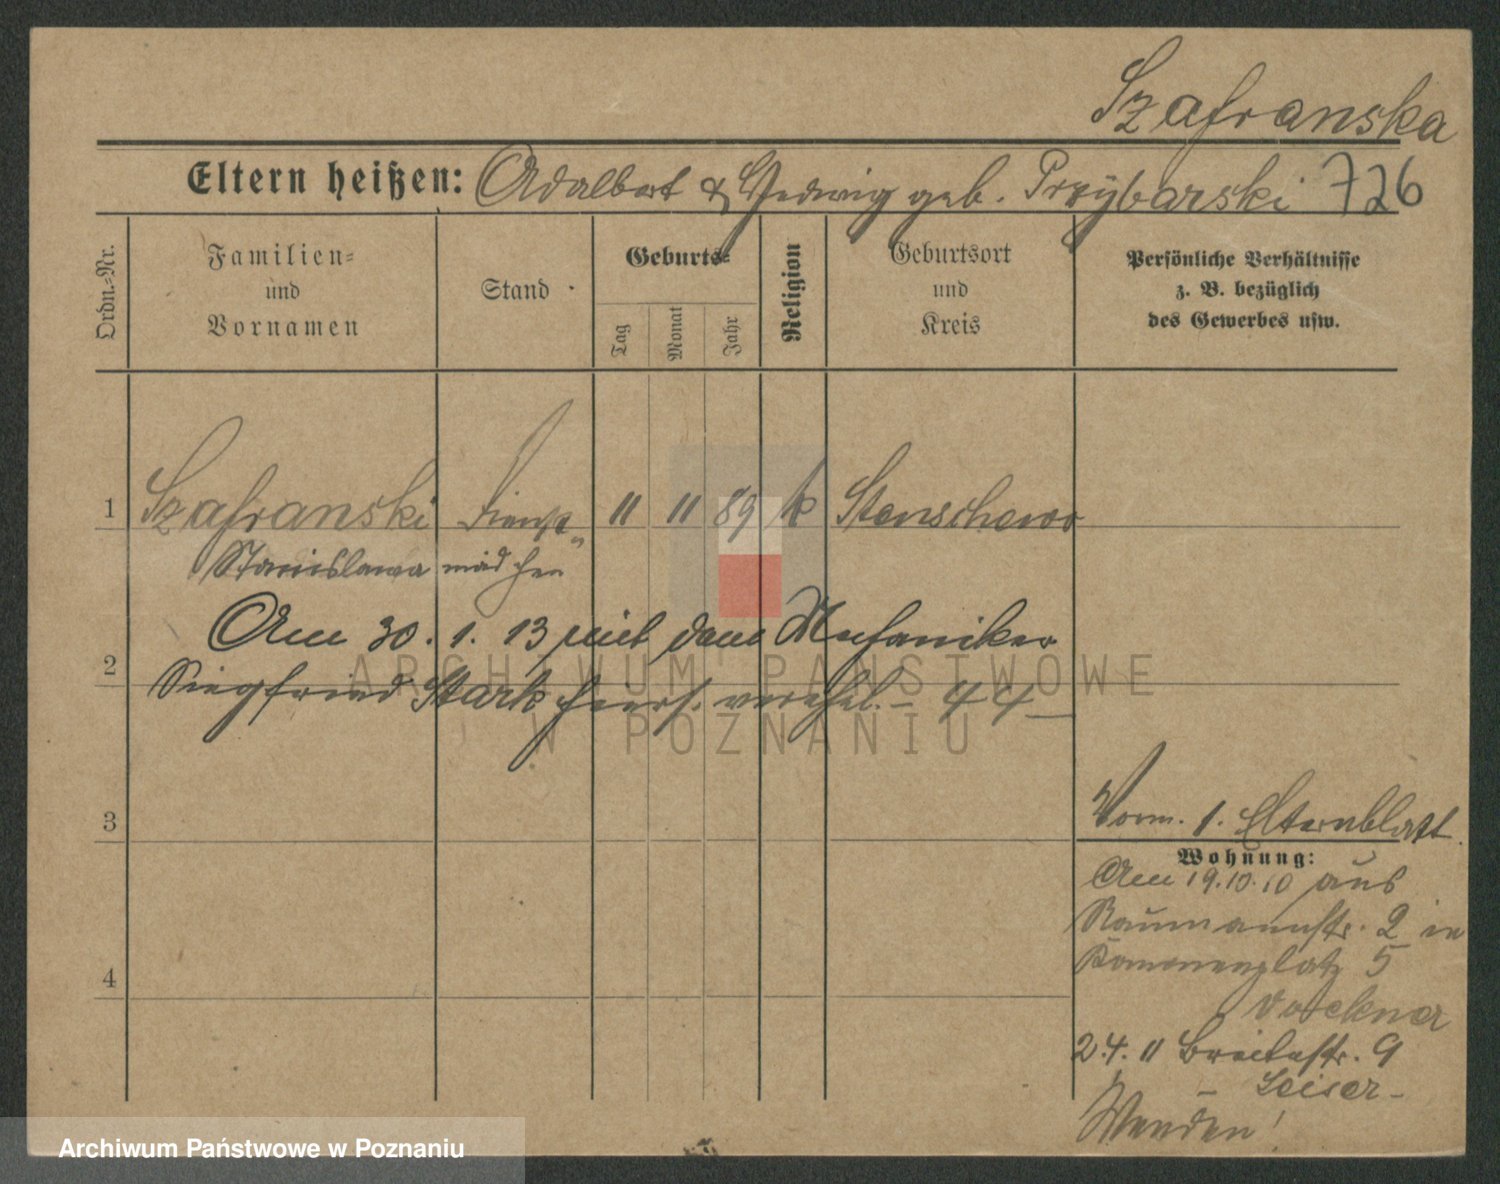 Szafranska
Eltern heißen: Adalbert & Hedwig geb. Przybarski 726
Ordn.-Nr.
Familien-
und
Vornamen
Stand
Geburts-
Tag
Monat
Jahr
Religion
Geburtsort
und
Kreis
Persönliche Verhältnisse
z. B. bezüglich
des Gewerbes usw.
1 Szafranski Dienst- 11 11 89 k Stenschewo
Stanislawa mädchen
Am 30. 1. 13 mit dem Mechaniker
2
Siegfried Stark hiers. verehel. – 44 –
3
4
Vorm. 1. Elternblatt.
Wohnung:
Am 19.10.10 aus
Naumannstr. 2 in
Kanonenplatz 5
24. 11 Breitestr. 9
– Leiser –
Wenden!
ARCHIWUM PAŃSTWOWE
W POZNANIU
Archiwum Państwowe w Poznaniu